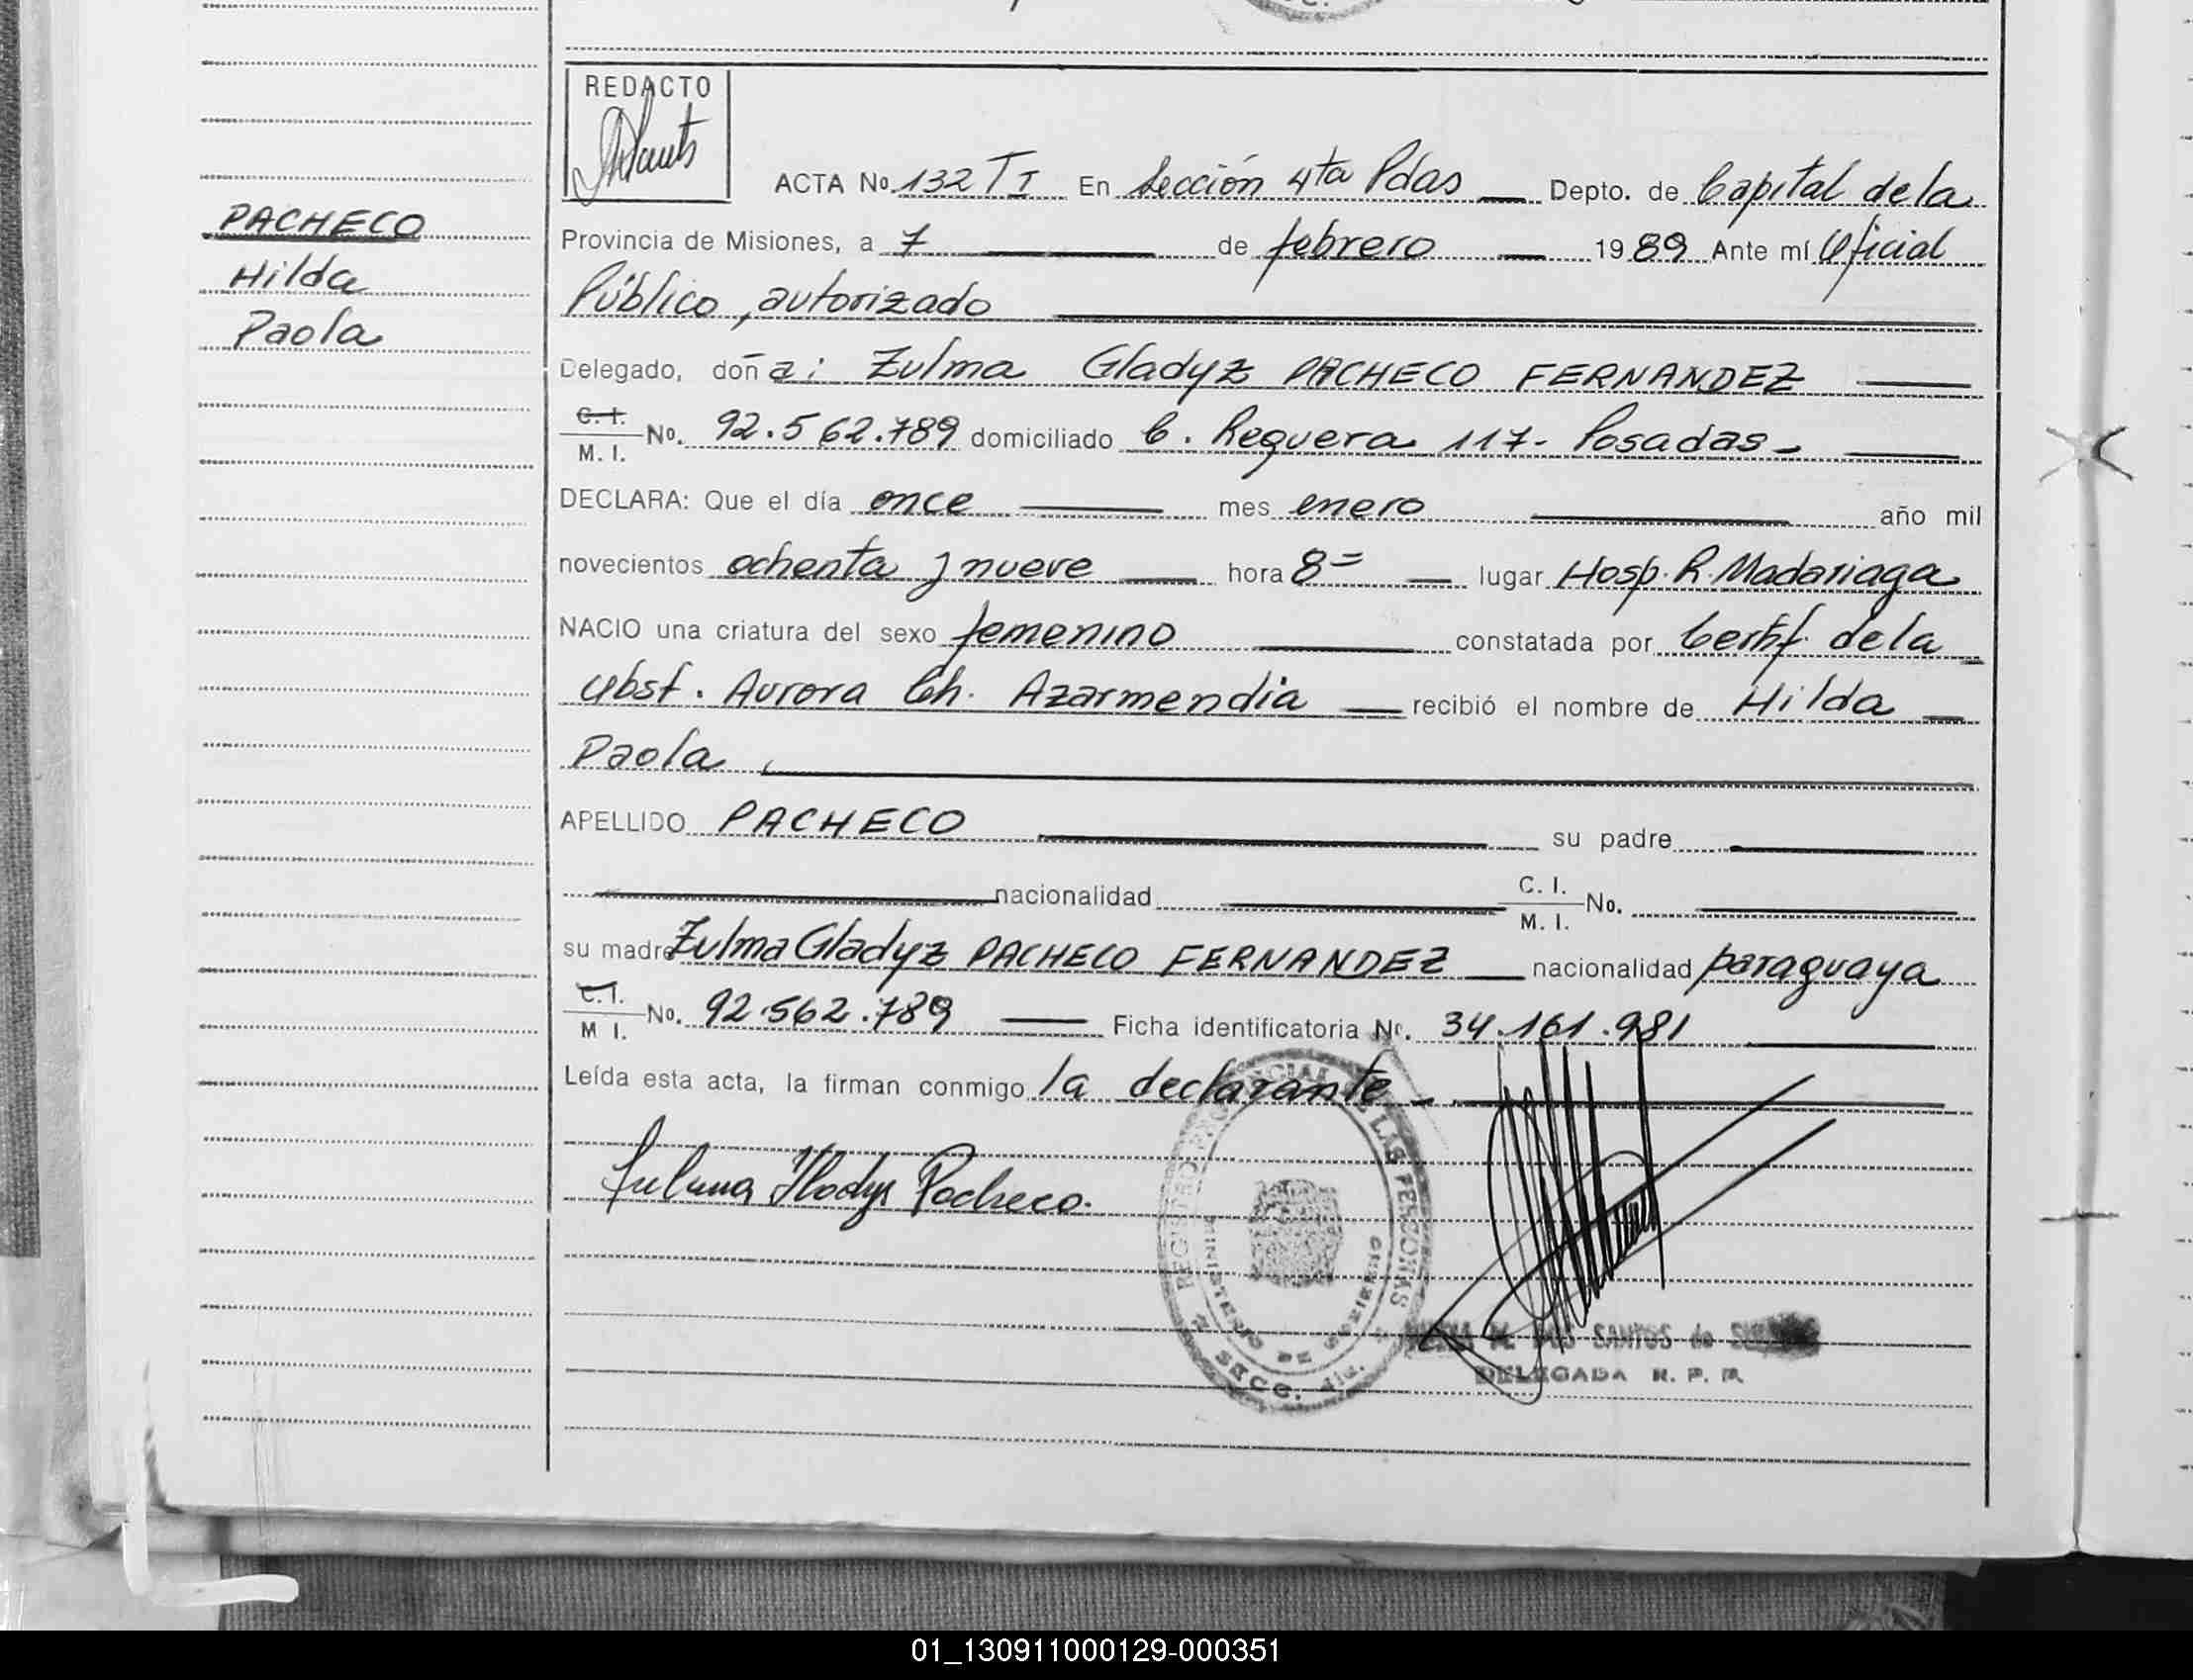 REDACTO
ACTA No. 132 TI En Sección 4ta Pdas Depto. de Capital de la
PACHECO
Hilda
Paola
Provincia de Misiones, a 7 de febrero 1989 Ante mí Oficial
Público, autorizado
Delegado, doña: Zulma Gladyz PACHECO FERNANDEZ
C. I.
M. I. No. 92.562.789 domiciliado C. Requera 117- Posadas-
DECLARA: Que el día once mes enero año mil
novecientos ochenta y nueve hora 8= lugar Hosp. R. Madariaga
NACIO una criatura del sexo femenino constatada por Certif. de la
Obst. Aurora Ch. Azarmendia recibió el nombre de Hilda
Paola,
APELLIDO PACHECO su padre
nacionalidad C. I.
M. I. No.
su madre Zulma Gladyz PACHECO FERNANDEZ nacionalidad paraguaya
C. I.
M I. No. 92.562.789 Ficha identificatoria Nr. 34.161.981
Leída esta acta, la firman conmigo la declarante-
Zulma Gladys Pacheco.
REGISTRO PROVINCIAL DE LAS PERSONAS
MINISTERIO DE GOBIERNO
SECC. 4ta.
DOS SANTOS de
DELEGADA R. P. P.
01_130911000129-000351